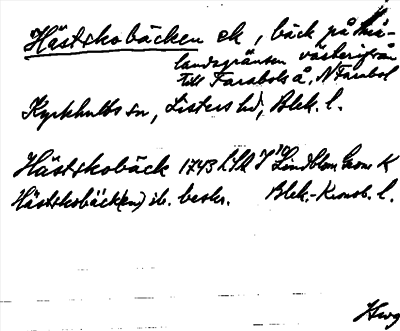 Hästskobäcken ek, bäck på Små-
landsgränsen västerifrån
till Farabols å, N Farabol
Kyrkhults sn, Listers hd, Blek. l.
Hästskobäck 1743 Lindblom K
Hästskobäck(en) ib. beskr. Blek.-Kronob. l.
Hwg